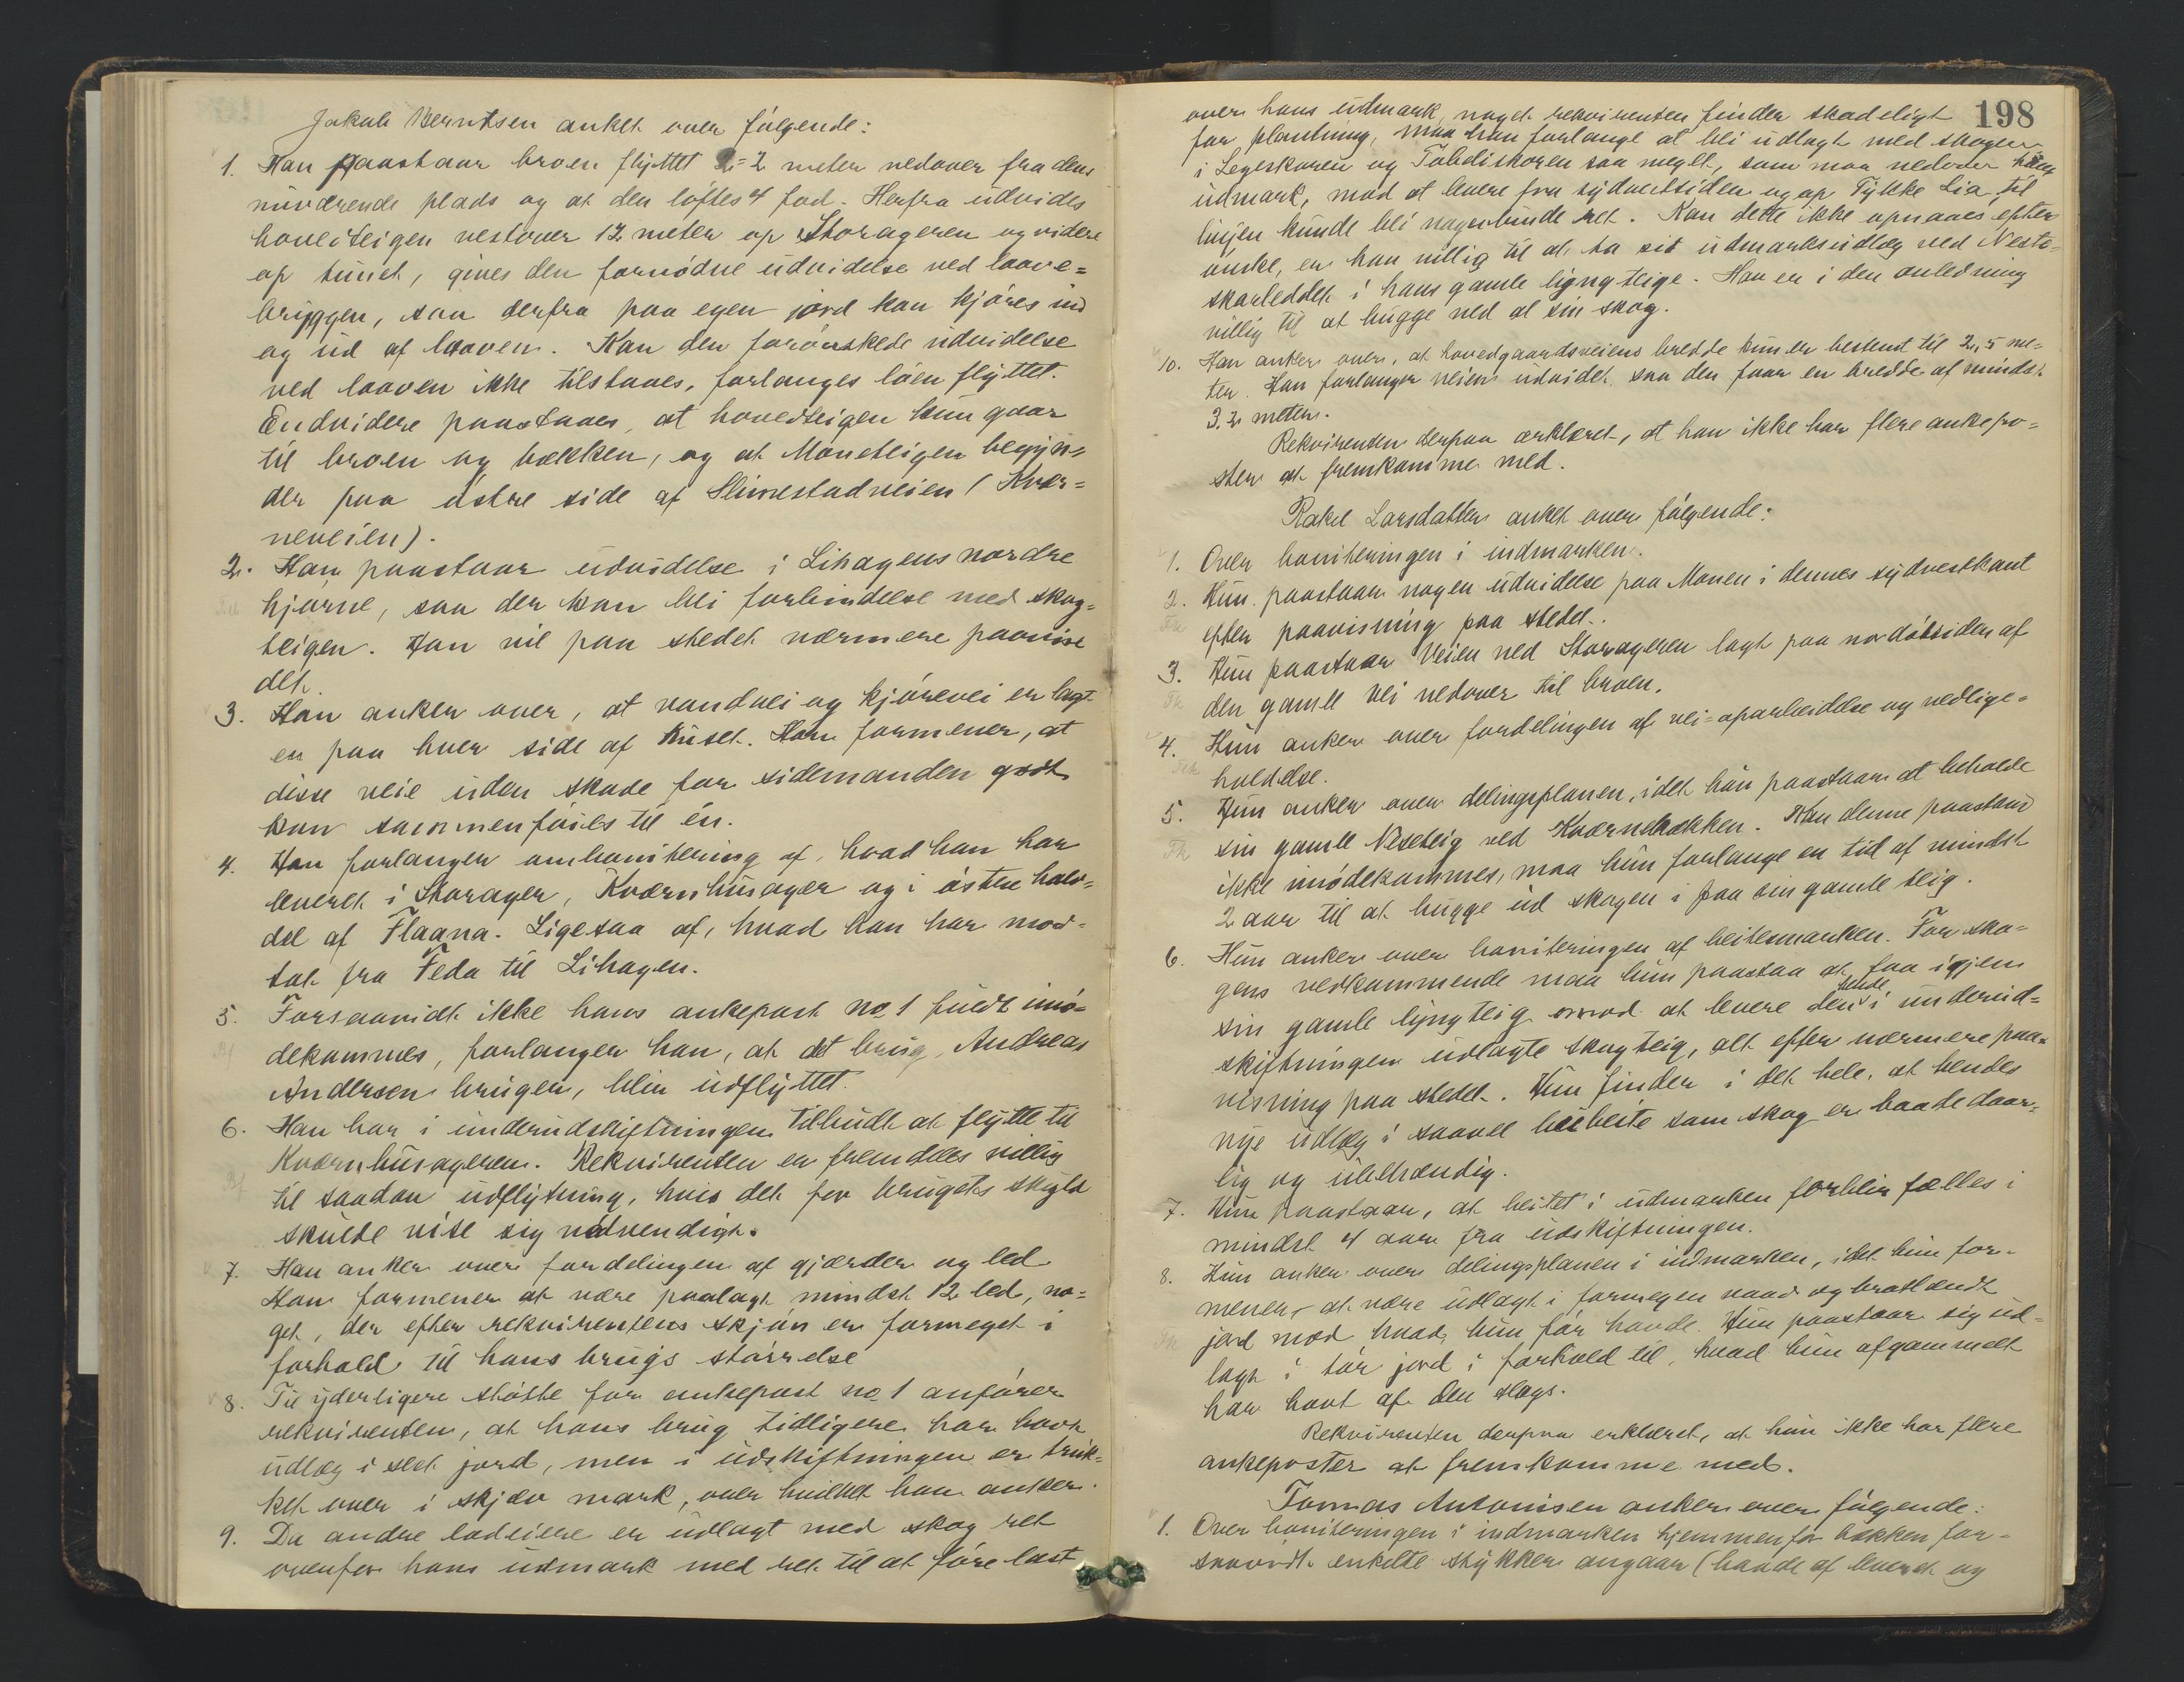 Jakob Berntsen anket over følgende:
1. Han paastaar broen flyttet 2 meter nedover fra dens
nuværende plads og at den løftes 4 fod. Herfra udvides
hoveiteigen vestover 12 meter op Storageren og videre
op tunet, gives den fornødne udvidelse ved laave=
bryggen, saa derfra paa egen jord kan kjøres ind
og ud af laaven. Kan den forønskede udvidelse
ved laaven ikke tilstaaes, forlanges løen flyttet.
Endvidere paastaaes, at hovedteigen kun gaar
til broen og bækken, og at Moneteigen begyn=
der paa østre side af Slimestadveien (Kvær=
neveien).
2. Han paastaar udvidelse i Lihagens nordre
hjørne, saa der kan bli forbindelse med skog=
teigen. Han vil paa stedet nærmere paavise
det.
3. Han anker over, at vandvei og kjørevei er lagt
en paa hver side af huset. Han formener, at
disse veie uden skade for sidemanden godt
kan sammenføies til én.
4. Han forlanger ombonitering af, hvad han har
leveret i Storager, Kværnhusager og i østre halv=
del af Flaana. Ligesaa af, hvad han har mod=
tat fra Feda til Lihagen.
5. Forsaavidt ikke hans ankepost no 1 fuldt imø=
dekommes, forlanger han, at det brug, Andreas
Andersen bruger, blir udflyttet.
6. Han har i underudskiftningen tilbudt at flytte til
Kværnhusageren. Rekvirenten er fremdeles villig
til saadan udflytning, hvis det for brugets skyld
skulde vise sig nødvendigt.
7. Han anker over fordelingen af gjærder og led.
Han formener at være paalagt mindst 12 led, no=
get, der efter rekvirentens skjøn er formeget i
forhold til hans brugs størrelse
8. Til yderligere støtte for ankepost no 1 anfører
rekvirenten, at hans brug tidligere har havt
udlæg i slet jord, men i udskiftningen er truk=
ket over i skjæv mark, over hvilket han anker.
9. Da andre lodeiere er udlagt med skog ret
ovenfor hans udmark med ret til at føre last
198
over hans udmark, noget rekvirenten finder skadeligt
for plantning, maa han forlange at bli udlagt med skogen
i Legeskoren og Tobdiskoren saa meget, som maa nedover hans
udmark, mod at levere fra sydvestsiden og op Tykke Lia til
linjen kunde bli nogenlunde ret. Kan dette ikke opnaaes efter
ønske, er han villig til at ta sit udmarksudlæg ved Neste=
skarleddet i hans gamle lyngteige. Han er i den anledning
villig til at hugge ned al sin skog.
10. Han anker over, at hovedgaardsveiens bredde kun er bestemt til 2,5 me=
ter. Han forlanger veien udvidet saa den faar en bredde af mindst
3,2 meter.
Rekvirenten derpaa erklæret, at han ikke har flere ankepo=
ster at fremkomme med.
Rakel Larsdatter anket over følgende:
1. Over boniteringen i indmarken.
2. Hun paastaar nogen udvidelse paa Monen i dennes sydvestkant
efter paavisning paa stedet.
3. Hun paastaar veien ved Storageren lagt paa nordøstsiden af
den gamle vei nedover til broen.
4. Hun anker over fordelingen af vei-oparbeidelse og vedlige=
holdelse.
5. Hun anker over delingsplanen, idet hun paastaar at beholde
sin gamle Neseteig ved Kværnebækken. Kan denne paastand
ikke imødekommes, maa hun forlange en tid af mindst
2 aar til at hugge ud skogen i paa sin gamle teig.
6. Hun anker over boniteringen af beitesmarken. For sko=
gens vedkommende maa hun paastaa at faa igjen
sin gamle lyngteig mod at levere den hende i underud=
skiftningen udlagte skogteig, alt efter nærmere paa=
visning paa stedet. Hun finder i det hele, at hendes
nye udlæg i saavel beite som skog er baade daar=
lig og ubehændig.
7. Hun paastaar, at beitet i udmarken forblir fælles i
mindst 4 aar fra udskiftningen.
8. Hun anker over delingsplanen i indmarken, idet hun for=
mener, at være udlagt i formegen vaad og bratlændt
jord mod hvad hun før havde. Hun paastaar sig ud=
lagt i tør jord i forhold til, hvad hun af gammelt
har havt af den slags.
Rekvirenten derpaa erklæret, at hun ikke har flere
ankeposter at fremkomme med.
Tomas Antonisen anker over følgende:
1. Over boniteringen i indmarken hjemmenfor bækken for=
saavidt enkelte stykker angaar (baade af leveret og